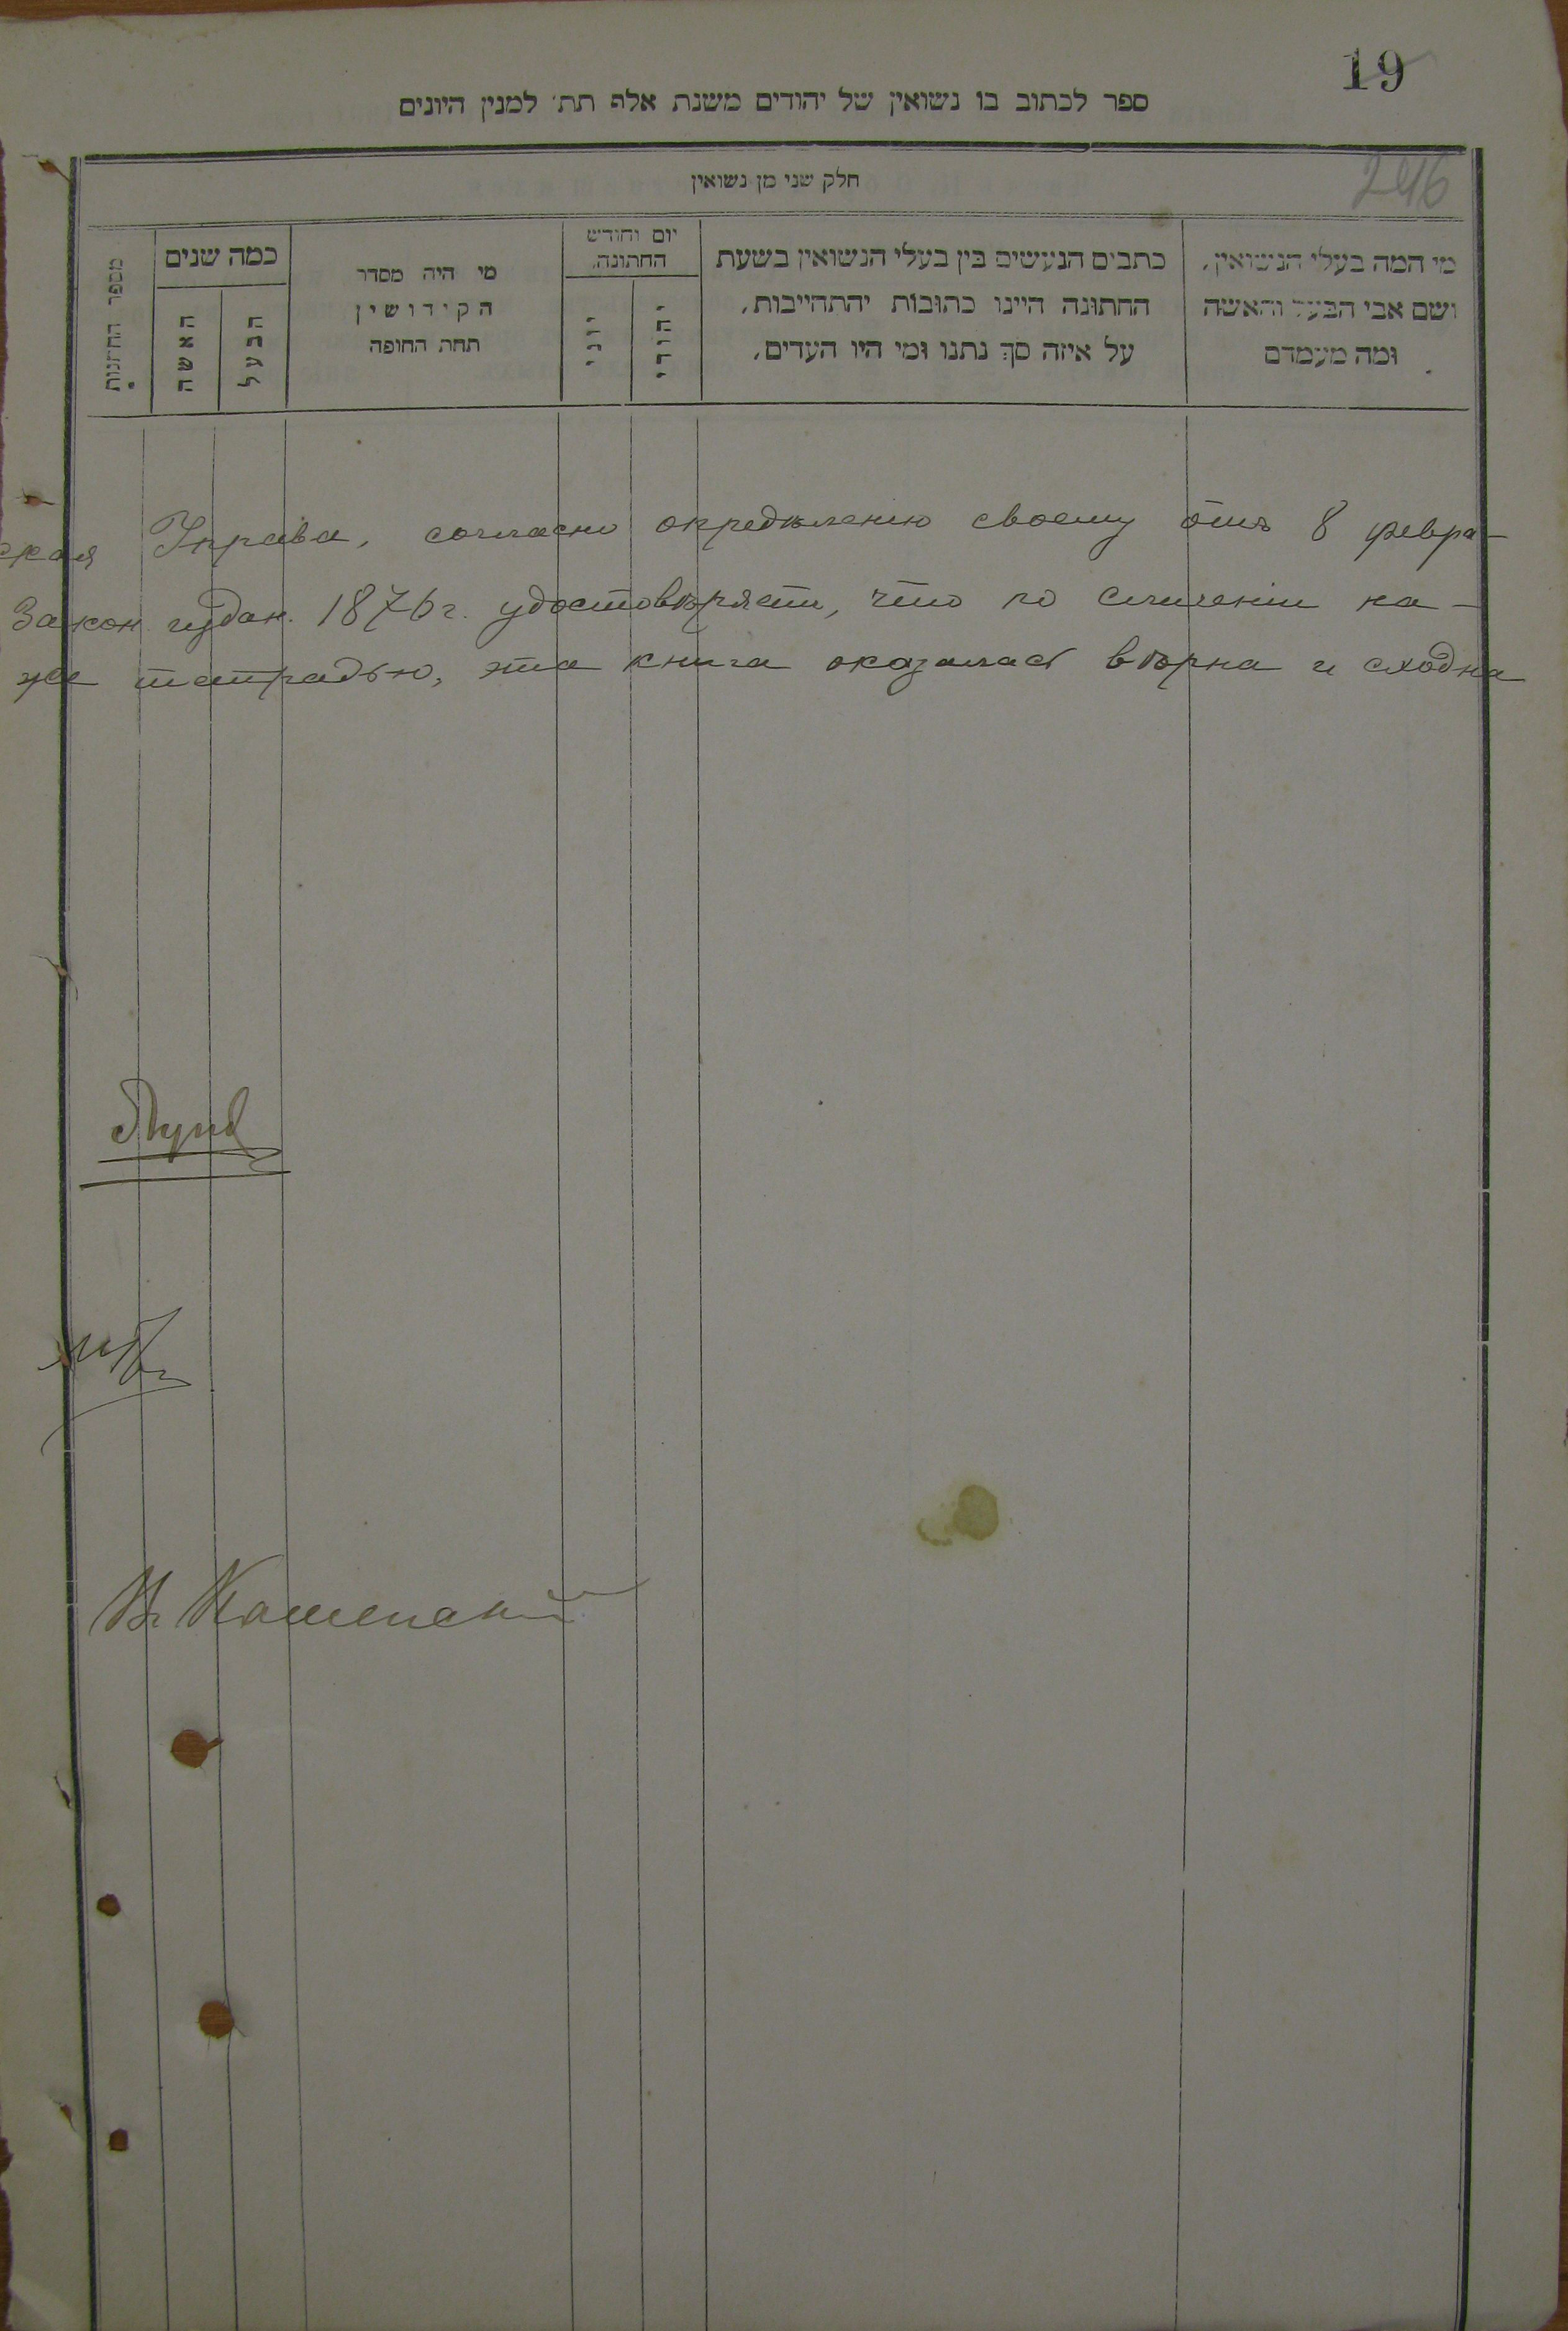 19
ספר לכתוב בו נשואין של יהודים משנת אלף תת׳ למנין היונים
246
חלק שני מן נשואין
מי המה בעלי הנשואין,
ושם אבי הבעל והאשה
ומה מעמדם
כתבים הנעשים בין בעלי הנשואין בשעת
החתונה היינו כתובות יהתחייבות,
על איזה סך נתנו ומי היו העדים,
יום וחודש
החתונה,
יהודי
יוני
מי היה מסדר
הקידושין
תחת החופה
כמה שנים
הבעל
האשה
מספר החתונות
ская Управа, согласно опредѣленію своему отъ 8 февра-
Закон. издан. 1876 г. удостовѣряетъ, что по сличеніи на-
же тетрадью, эта книга оказалась вѣрна и сходна
Каменскій